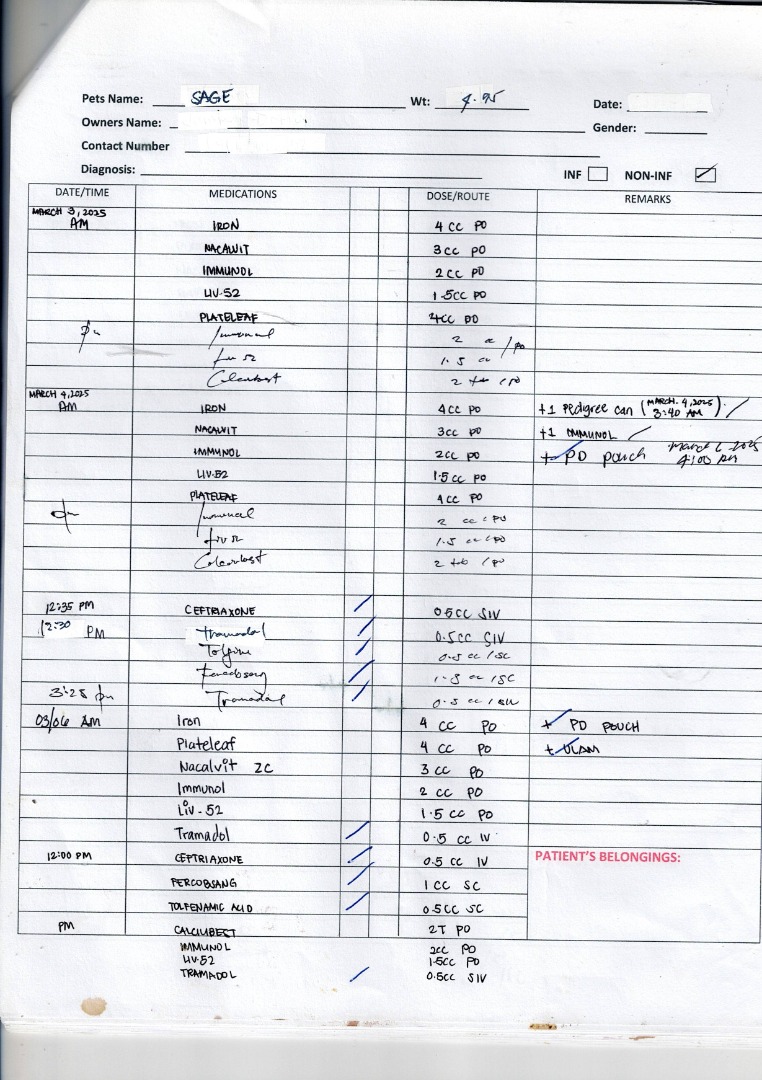 Pets Name: SAGE Wt: 4.95 Date:
Owners Name: Gender:
Contact Number
Diagnosis: INF NON-INF
DATE/TIME MEDICATIONS DOSE/ROUTE REMARKS
MARCH 3, 2025
AM IRON 4 CC PO
NACALVIT 3CC PO
IMMUNOL 2CC PO
LIV-52 1.5CC PO
PLATELEAF 4CC PO
pm Immunol 2 cc / po
Liv 52 1.5 cc
2 tab / po
MARCH 4, 2025
AM IRON 4CC PO +1 Pedigree can (MARCH. 4, 2025) 3:40 AM
NACALVIT 3CC PO +1 IMMUNOL
IMMUNOL 2CC PO + PD pouch March 2025 4:00 PM
LIV-52 1.5 CC PO
PLATELEAF 4CC PO
pm Immunol 2 cc / po
Liv 52 1.5 cc / po
2 tab / po
12:35 PM CEFTRIAXONE 0.5CC SIV
12:30 PM Tramadol 0.5CC SIV
0.5 cc / SC
cc / SC
3:25 pm Tramadol 0.5 cc /
03/06 AM Iron 4 CC PO + PD POUCH
Plateleaf 4 CC PO + ULAM
Nacalvit ZC 3 CC PO
Immunol 2 CC PO
Liv-52 1.5 CC PO
Tramadol 0.5 CC IV
12:00 PM CEFTRIAXONE 0.5 CC IV PATIENT'S BELONGINGS:
FERCOBSANG 1 CC SC
TOLFENAMIC ACID 0.5CC SC
PM CALCIUBEST 2T PO
IMMUNOL 2CC PO
LIV-52 1.5CC PO
TRAMADOL 0.5CC SIV